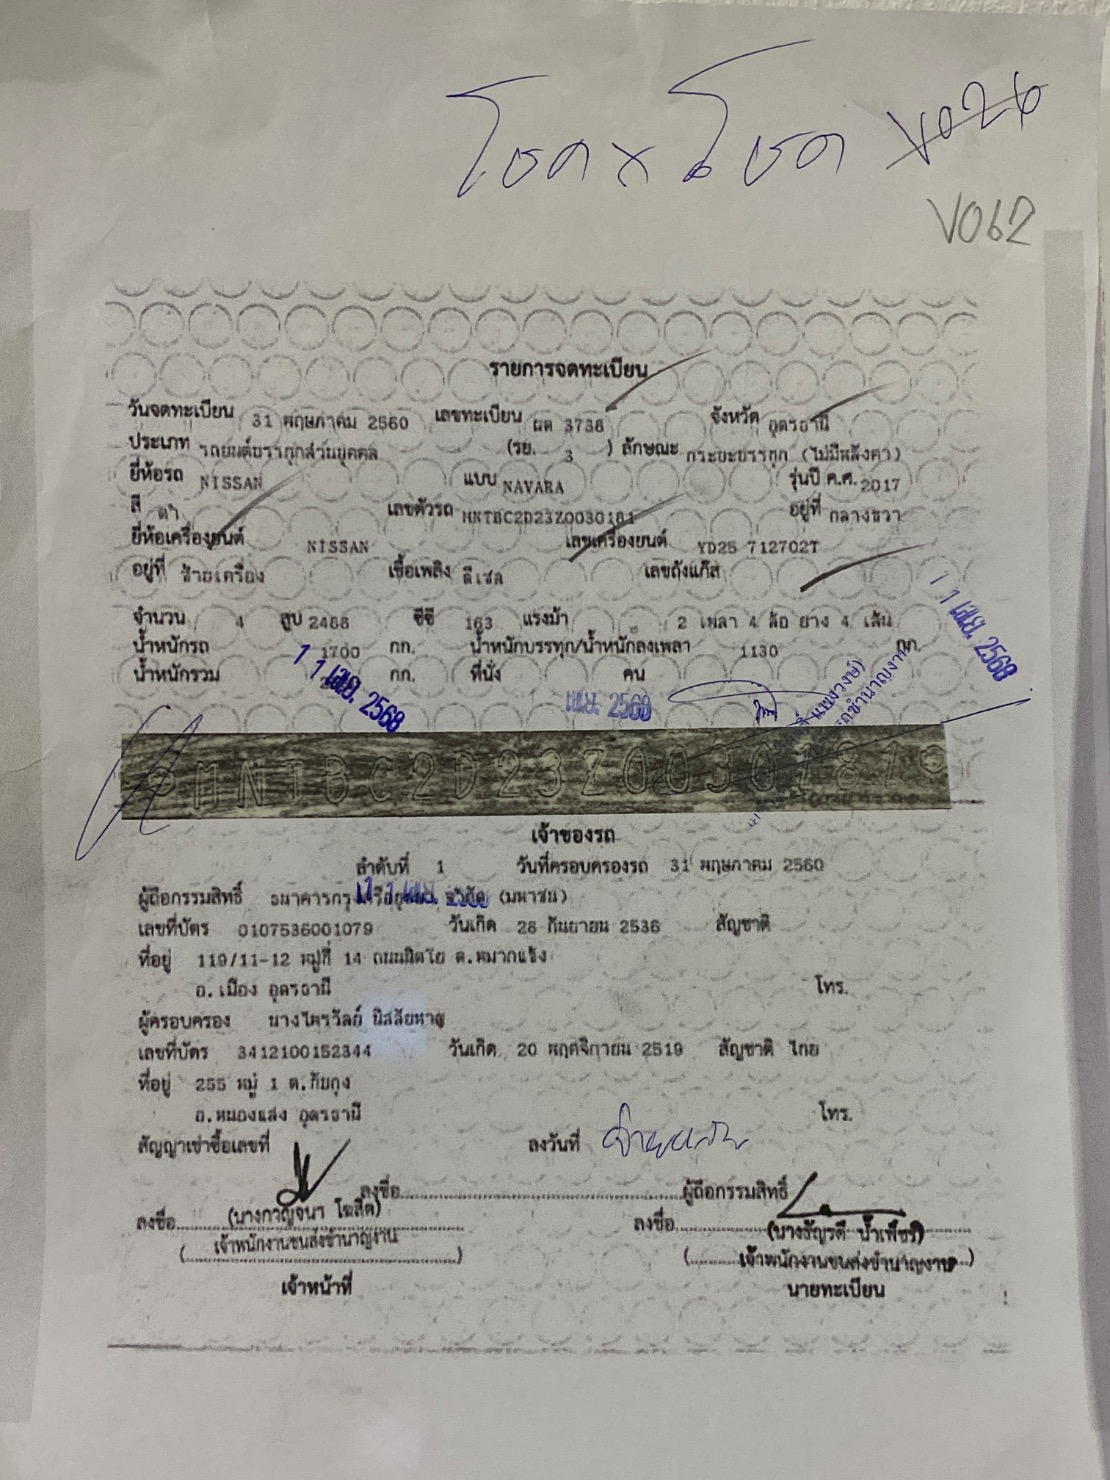 โชค x โชค V026
V062
รายการจดทะเบียน
วันจดทะเบียน 31 พฤษภาคม 2560 เลขทะเบียน ผต 3736 จังหวัด อุดรธานี
ประเภท รถยนต์บรรทุกส่วนบุคคล (รย. 3 ) ลักษณะ กระบะบรรทุก (ไม่มีหลังคา)
ยี่ห้อรถ NISSAN แบบ NAVARA รุ่นปี ค.ศ. 2017
สี ดำ เลขตัวรถ MNTBC2D23Z0030181 อยู่ที่ กลางขวา
ยี่ห้อเครื่องยนต์ NISSAN เลขเครื่องยนต์ YD25 712702T
อยู่ที่ ซ้ายเครื่อง เชื้อเพลิง ดีเซล เลขถังแก๊ส
จำนวน 4 สูบ 2488 ซีซี 163 แรงม้า 2 เพลา 4 ล้อ ยาง 4 เส้น
น้ำหนักรถ 1700 กก. น้ำหนักบรรทุก/น้ำหนักลงเพลา 1130 กก.
น้ำหนักรวม กก. ที่นั่ง คน
11 เม.ย. 2568
เม.ย. 2568
11 เม.ย. 2568
MNTBC2D23Z0030181
เจ้าของรถ
ลำดับที่ 1 วันที่ครอบครองรถ 31 พฤษภาคม 2560
ผู้ถือกรรมสิทธิ์ ธนาคารกรุงศรีอยุธยา จำกัด (มหาชน)
เลขที่บัตร 0107536001079 วันเกิด 28 กันยายน 2536 สัญชาติ
ที่อยู่ 119/11-12 หมู่ที่ 14 ถนนมิตโย ต.หมากแข้ง
อ.เมือง อุดรธานี โทร.
ผู้ครอบครอง นางไพรวัลย์ นิสลัยหาญ
เลขที่บัตร 3412100152344 วันเกิด 20 พฤศจิกายน 2519 สัญชาติ ไทย
ที่อยู่ 255 หมู่ 1 ต.ทับกุง
อ.หนองแสง อุดรธานี โทร.
สัญญาเช่าซื้อเลขที่ ลงวันที่
ลงชื่อ ผู้ถือกรรมสิทธิ์
ลงชื่อ (นางกาญจนา โฉสิต) ลงชื่อ (นางธัญรดี น้ำเพ็ชร์)
(เจ้าพนักงานขนส่งชำนาญงาน) (เจ้าพนักงานขนส่งชำนาญงาน)
เจ้าหน้าที่ นายทะเบียน